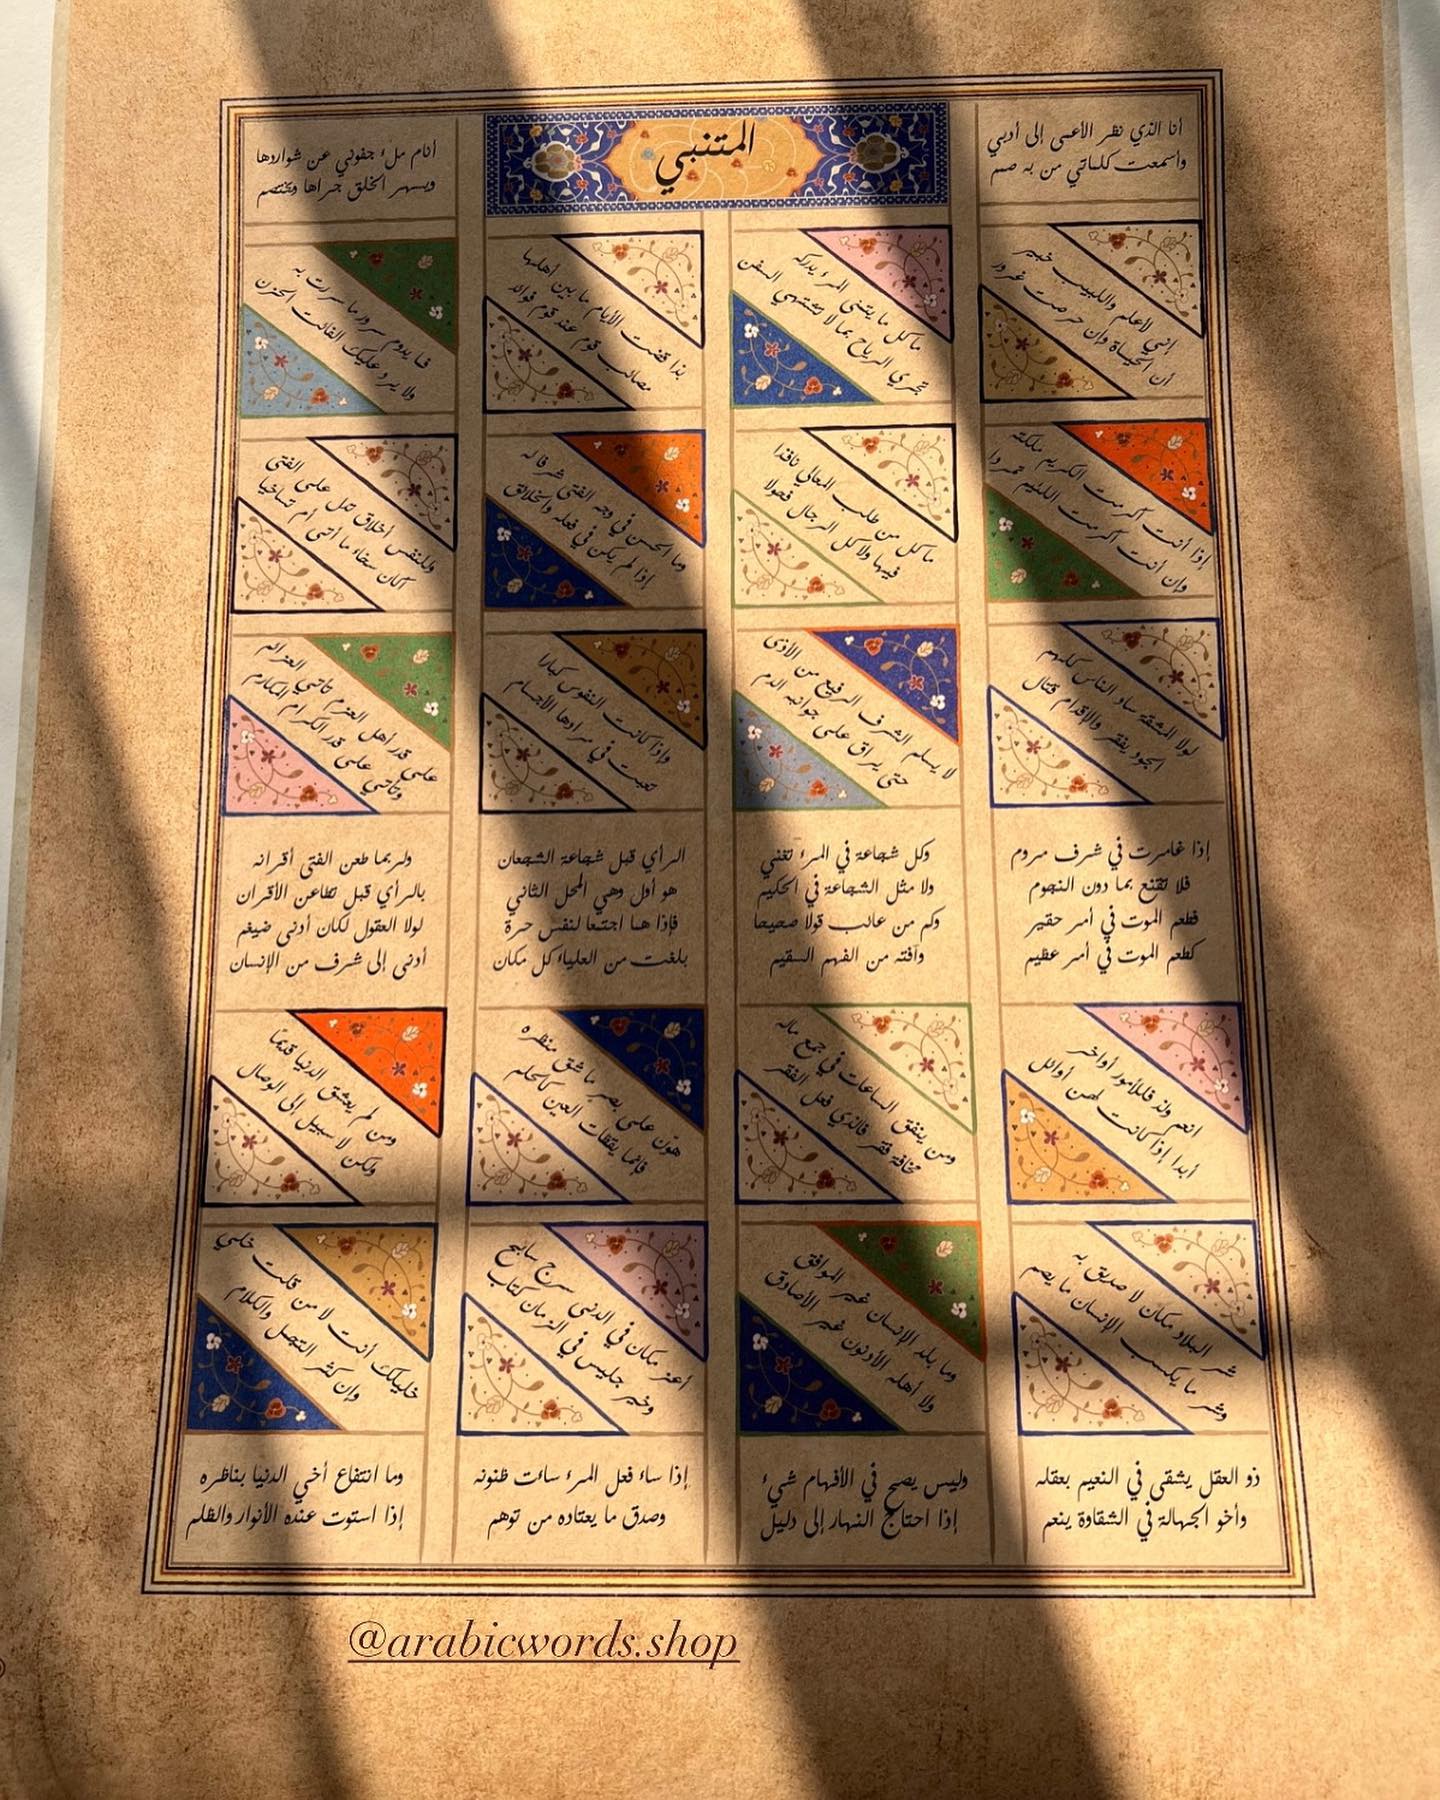 المتنبي
أنا الذي نظر الأعمى إلى أدبي
واسمعت كلماتي من به صمم
أنام ملء جفوني عن شواردها
ويسهر الخلق جراها ويختصم
إني لأعلم واللبيب خبير
أن الحياة وإن حرصت غرور
ما كل ما يتمنى المرء يدركه
تجري الرياح بما لا تشتهي السفن
بذا قضت الأيام ما بين أهلها
مصائب قوم عند قوم فوائد
فما يدوم سرور ما سررت به
ولا يرد عليك الفائت الحزن
إذا أنت أكرمت الكريم ملكته
وإن أنت أكرمت اللئيم تمردا
ما كل من طلب المعالي نافذا
فيها ولا كل الرجال فحولا
وما الحسن في وجه الفتى شرفا له
إذا لم يكن في فعله والخلائق
وللنفس أخلاق تدل على الفتى
أكان سخاء ما أتى أم تساخيا
لولا المشقة ساد الناس كلهم
الجود يفقر والإقدام قتال
لا يسلم الشرف الرفيع من الأذى
حتى يراق على جوانبه الدم
وإذا كانت النفوس كبارا
تعبت في مرادها الأجسام
على قدر أهل العزم تأتي العزائم
وتأتي على قدر الكرام المكارم
إذا غامرت في شرف مروم
فلا تقنع بما دون النجوم
فطعم الموت في أمر حقير
كطعم الموت في أمر عظيم
وكل شجاعة في المرء تغني
ولا مثل الشجاعة في الحكيم
وكم من عائب قولا صحيحا
وآفته من الفهم السقيم
الرأي قبل شجاعة الشجعان
هو أول وهي المحل الثاني
فإذا هما اجتمعا لنفس حرة
بلغت من العلياء كل مكان
ولربما طعن الفتى أقرانه
بالرأي قبل تطاعن الأقران
لولا العقول لكان أدنى ضيغم
أدنى إلى شرف من الإنسان
انعم ولذ فللأمور أواخر
أبدا إذا كانت لهن أوائل
ومن ينفق الساعات في جمع ماله
مخافة فقر فالذي فعل الفقر
هون على بصر ما شق منظره
فإنما يقظات العين كالحلم
ومن لم يعشق الدنيا قديما
ولكن لا سبيل إلى الوصال
شر البلاد مكان لا صديق به
وشر ما يكسب الإنسان ما يصم
وما بلد الإنسان غير الموافق
ولا أهله الأدنون غير الأصادق
أعز مكان في الدنى سرج سابح
وخير جليس في الزمان كتاب
خليلك أنت لا من قلت خلي
وإن كثر التجمل والكلام
ذو العقل يشقى في النعيم بعقله
وأخو الجهالة في الشقاوة ينعم
وليس يصح في الأفهام شيء
إذا احتاج النهار إلى دليل
إذا ساء فعل المرء ساءت ظنونه
وصدق ما يعتاده من توهم
وما انتفاع أخي الدنيا بناظره
إذا استوت عنده الأنوار والظلم
@arabicwords.shop